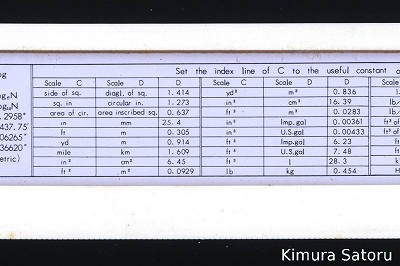 og
Set the index line of C to the useful constant o
Scale C Scale D D Scale C Scale D D Scale
side of sq. diagl. of sq. 1. 414 yd² m² 0. 836 l
sq. in circular in. 1. 273 in³ cm³ 16. 39 lb/
area of cir. area inscribed sq. 0. 637 ft³ m³ 0. 0283 lb/
in mm 25. 4 in³ Imp. gal 0. 00361 ft³ of
ft m 0. 305 in³ U.S.gal 0. 00433 ft³ of
yd m 0. 914 ft³ Imp. gal 6. 23 f
mile km 1. 609 ft³ U.S.gal 7. 48 f
in² cm² 6. 45 ft³ l 28. 3 k
ft² m² 0. 0929 lb kg 0. 454 H
logₑN
. 2958"
437. 75'
06265"
36620"
etric)
Kimura Satoru